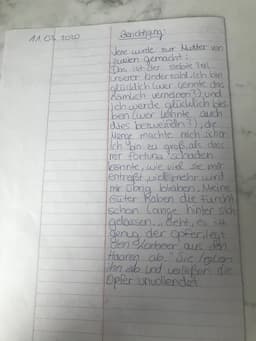 11.03.2020
Berichtigung:
Jene wurde zur Mutter von
zweien gemacht:
Das ist der siebte Teil
unserer Kinderzahl. Ich bin
glücklich (wer könnte das
nämlich verneinen?) und
ich werde glücklich blei-
ben (wer könnte auch
dies bezweifeln?), die
Menge machte mich sicher
Ich bin zu groß als dass
mir Fortuna schaden
könnte, wie viel sie mir
entreißt, viel mehr wird
mir übrig bleiben. Meine
Güter haben die Furcht
schon lange hinter sich
gelassen. „Geht, es ist
genug der Opfer, legt
den Lorbeer aus den
Haaren ab." Sie legten
ihn ab und verließen die
Opfer unvollendet.